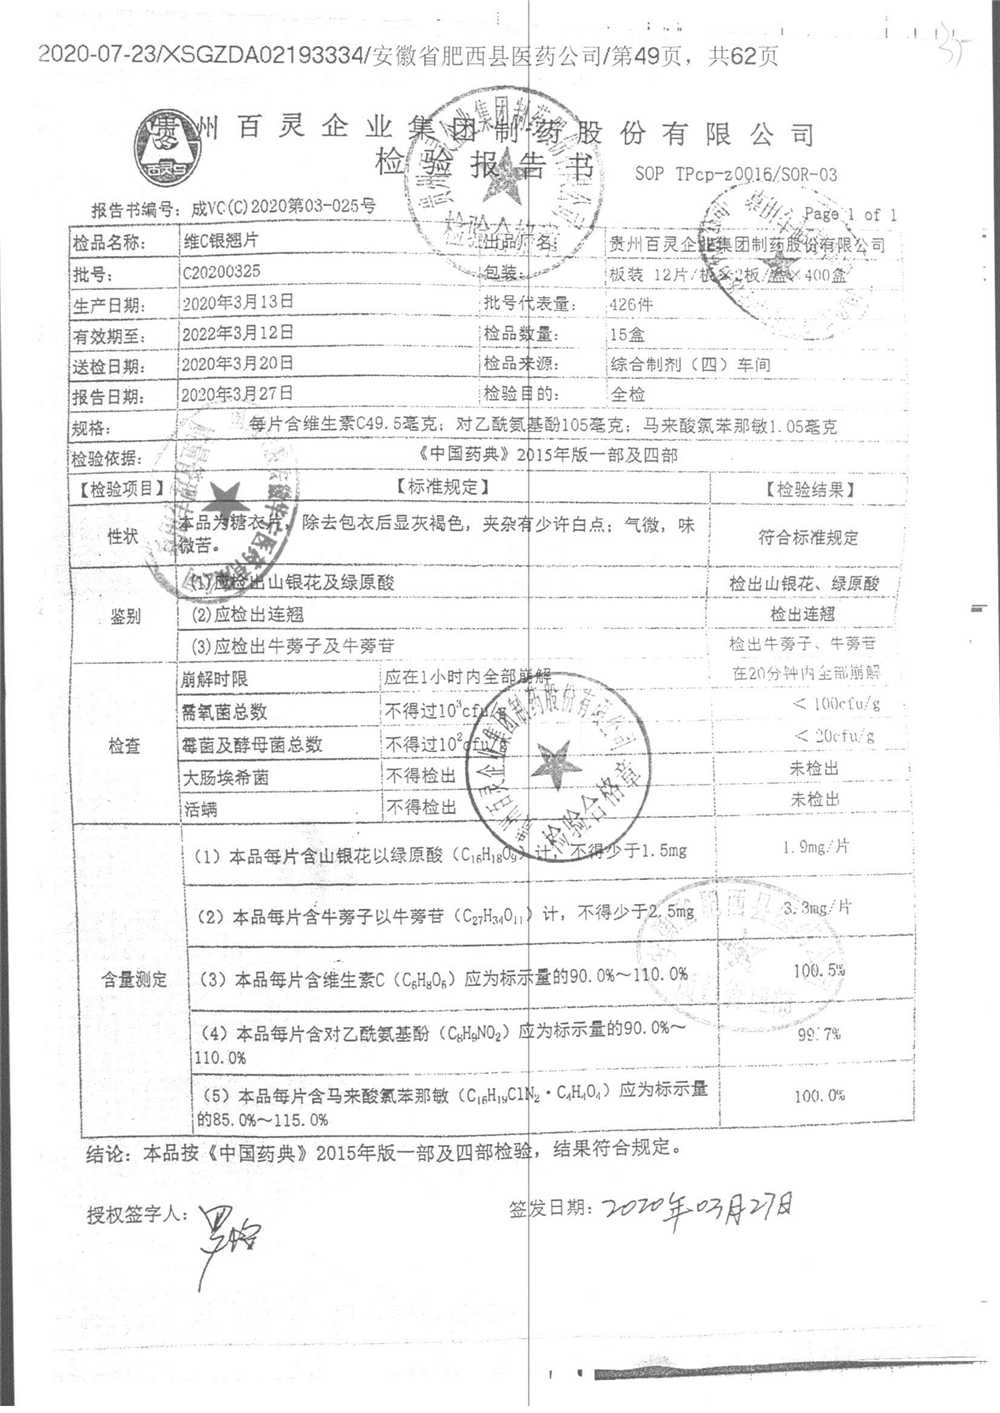 2020-07-23/XSGZDA02193334/安徽省肥西县医药公司/第49页，共62页
贵州百灵企业集团制药股份有限公司
检验报告书
SOP TPcp-z0016/SOR-03
报告书编号：成VC(C)2020第03-025号
Page 1 of 1
检品名称： 维C银翘片 出品厂名： 贵州百灵企业集团制药股份有限公司
批号： C20200325 包装： 板装 12片/板×2板/盒×400盒
生产日期： 2020年3月13日 批号代表量： 426件
有效期至： 2022年3月12日 检品数量： 15盒
送检日期： 2020年3月20日 检品来源： 综合制剂（四）车间
报告日期： 2020年3月27日 检验目的： 全检
规格： 每片含维生素C49.5毫克；对乙酰氨基酚105毫克；马来酸氯苯那敏1.05毫克
检验依据： 《中国药典》2015年版一部及四部
【检验项目】 【标准规定】 【检验结果】
性状 本品为糖衣片，除去包衣后显灰褐色，夹杂有少许白点；气微，味微苦。 符合标准规定
鉴别 (1)应检出山银花及绿原酸 检出山银花、绿原酸
(2)应检出连翘 检出连翘
(3)应检出牛蒡子及牛蒡苷 检出牛蒡子、牛蒡苷
检查 崩解时限 应在1小时内全部崩解 在20分钟内全部崩解
需氧菌总数 不得过10³cfu/g ＜100cfu/g
霉菌及酵母菌总数 不得过10²cfu/g ＜20cfu/g
大肠埃希菌 不得检出 未检出
活螨 不得检出 未检出
含量测定 （1）本品每片含山银花以绿原酸（C₁₆H₁₈O₉）计，不得少于1.5mg 1.9mg/片
（2）本品每片含牛蒡子以牛蒡苷（C₂₇H₃₄O₁₁）计，不得少于2.5mg 3.3mg/片
（3）本品每片含维生素C（C₆H₈O₆）应为标示量的90.0%～110.0% 100.5%
（4）本品每片含对乙酰氨基酚（C₈H₉NO₂）应为标示量的90.0%～
110.0% 99.7%
（5）本品每片含马来酸氯苯那敏（C₁₆H₁₉ClN₂·C₄H₄O₄）应为标示量
的85.0%～115.0% 100.0%
结论：本品按《中国药典》2015年版一部及四部检验，结果符合规定。
授权签字人：
签发日期：2020年03月27日
检验合格章